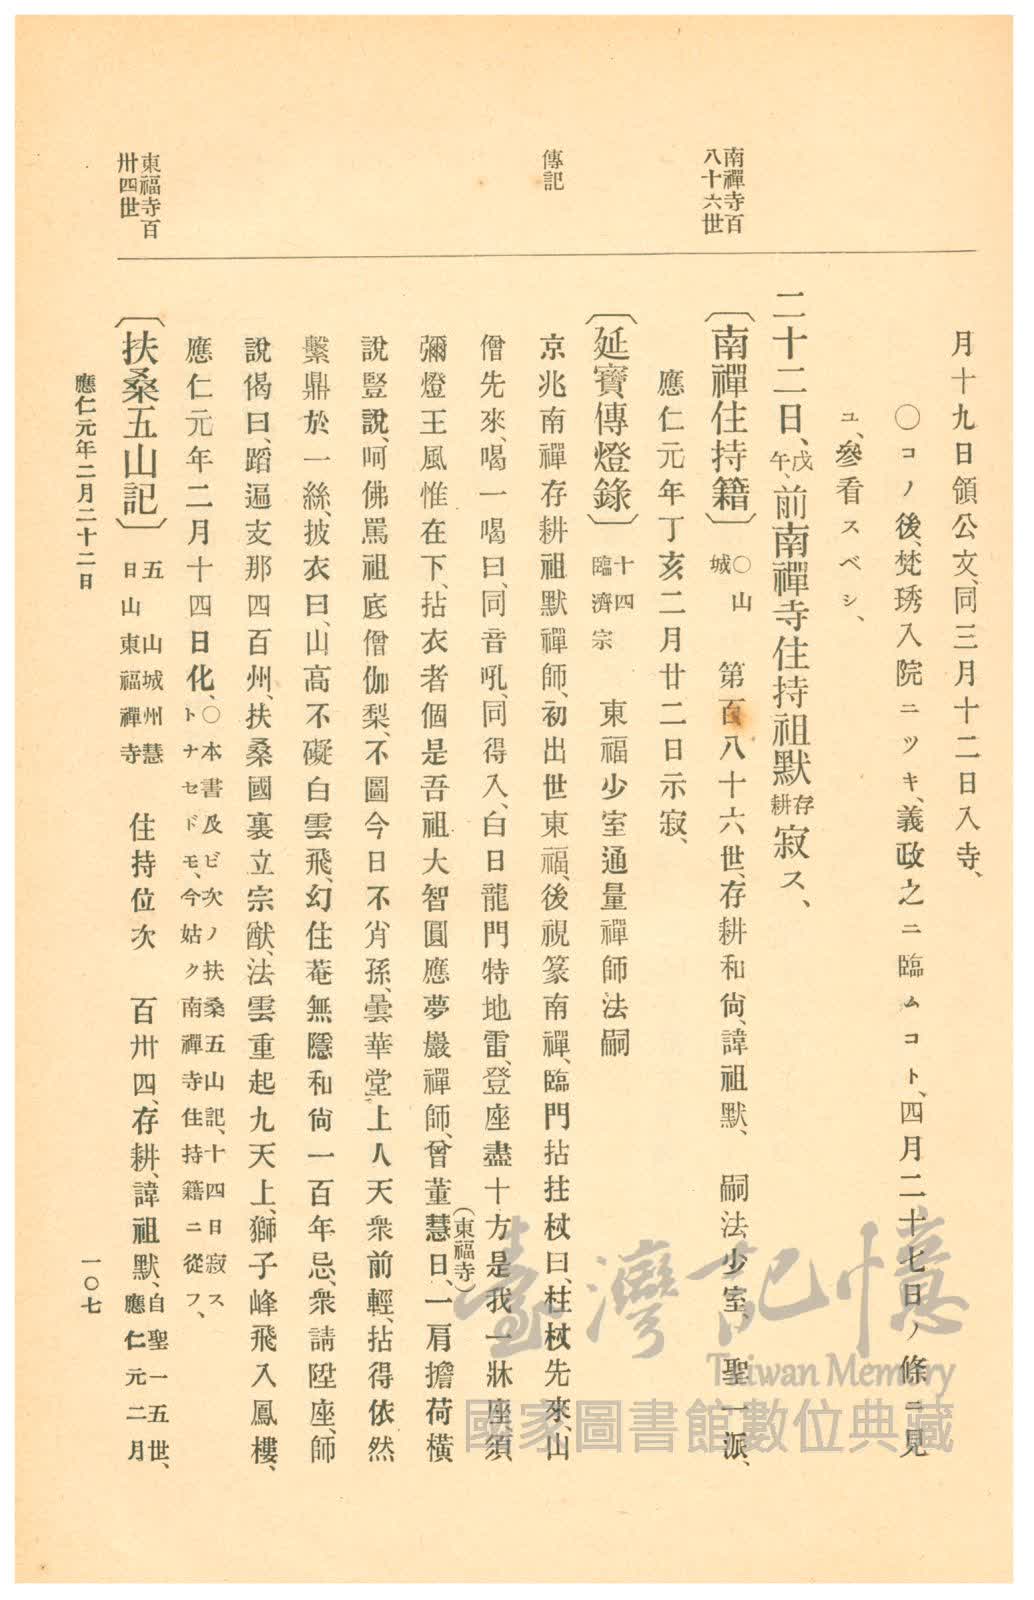 南禪寺百
八十六世
傳記
東福寺百
卅四世
月十九日領公文、同三月十二日入寺、
〇コノ後、梵琇入院ニツキ、義政之ニ臨ムコト、四月二十七日ノ條ニ見
ユ、參看スベシ、
二十二日、戊午、前南禪寺住持祖默存耕寂ス、
〔南禪住持籍〕〇山城 第百八十六世、存耕和尙、諱祖默、 嗣法少室、 聖一派、
應仁元年丁亥二月廿二日示寂、
〔延寶傳燈錄〕十四臨濟宗 東福少室通量禪師法嗣
京兆南禪存耕祖默禪師、初出世東福、後視篆南禪、臨門拈拄杖曰、柱杖先來、山
僧先來、喝一喝曰、同音吼、同得入、白日龍門特地雷、登座盡十方是我一牀座、須
彌燈王風惟在下、拈衣者個是吾祖大智圓應夢巖禪師、曾董慧日、(東福寺)一肩擔荷橫
說豎說、呵佛罵祖底僧伽梨、不圖今日不肖孫、曇華堂上人天衆前輕、拈得依然
繫鼎於一絲、披衣曰、山高不礙白雲飛、幻住菴無隱和尙一百年忌、衆請陞座、師
說偈曰、蹈遍支那四百州、扶桑國裏立宗猷、法雲重起九天上、獅子峰飛入鳳樓、
應仁元年二月十四日化、〇本書及ビ次ノ扶桑五山記、十四日寂ストナセドモ、今姑ク南禪寺住持籍ニ從フ、
〔扶桑五山記〕五 山城州慧日山東福禪寺 住持位次 百卅四、存耕、諱祖默、自聖一五世、應仁元二月
應仁元年二月二十二日
一〇七
臺灣記憶
Taiwan Memory
國家圖書館數位典藏